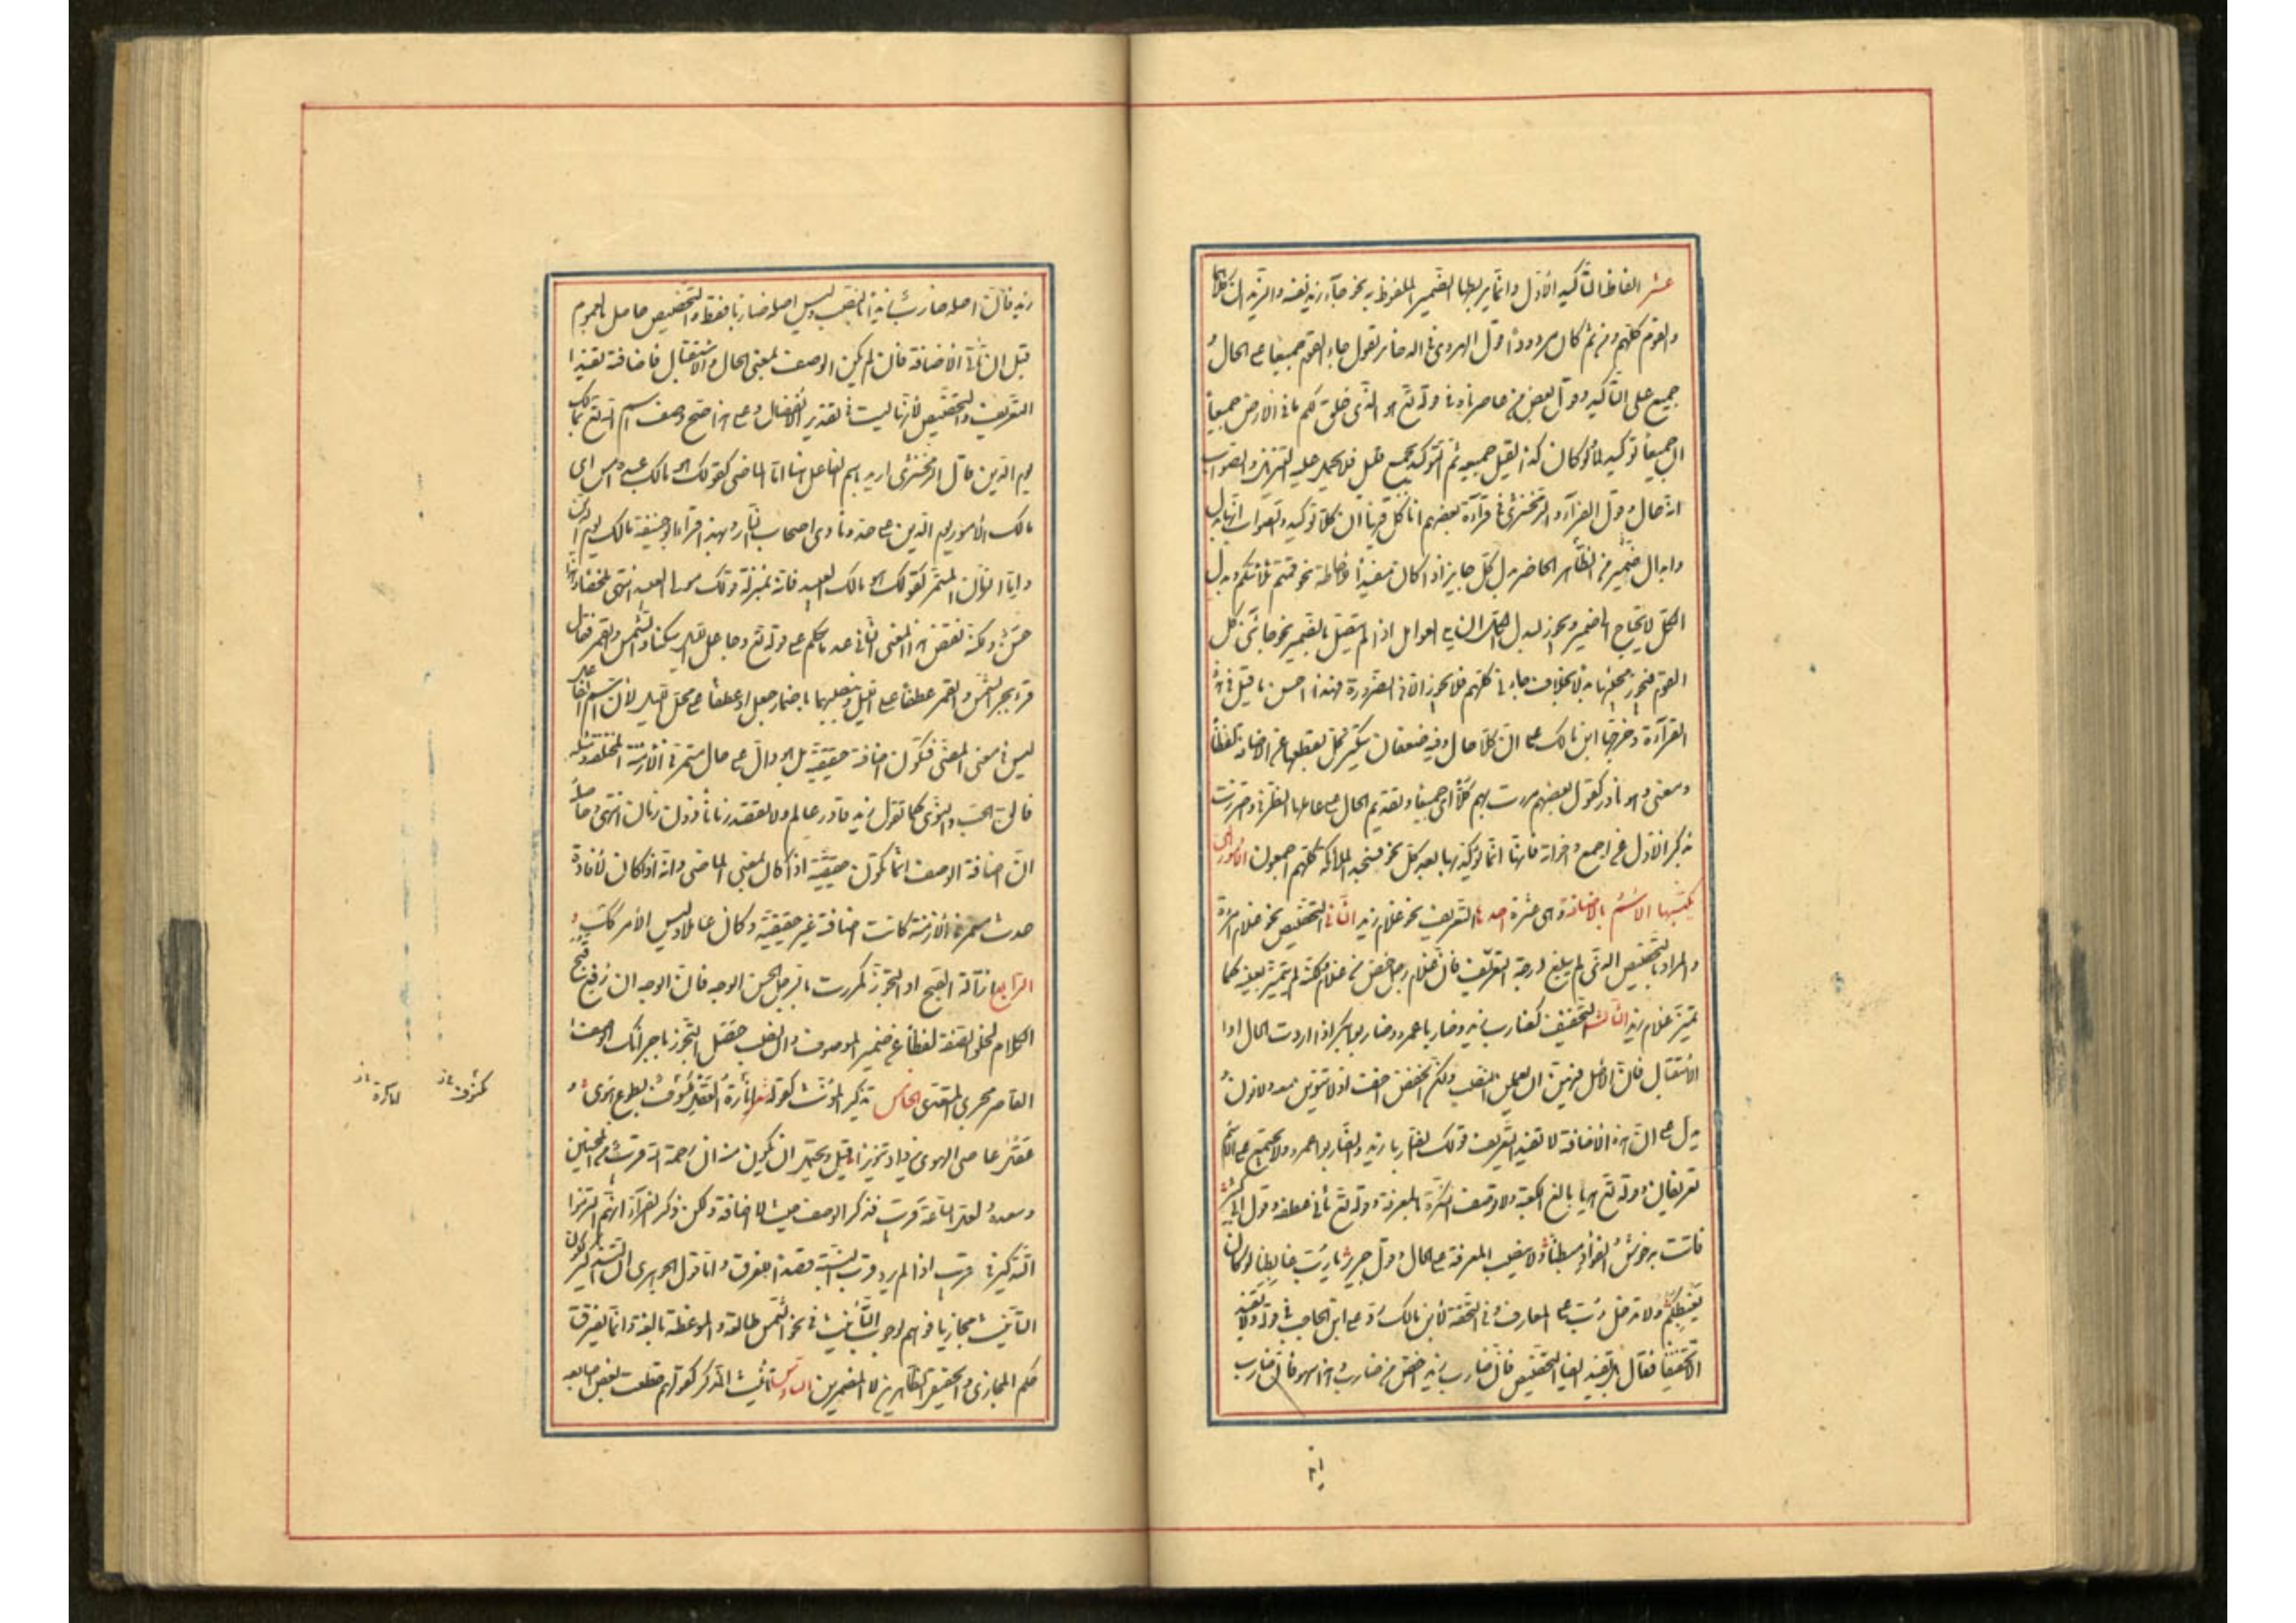 عشر الفاظ التأكيد الأول وانما يربطها الضمير الملفوظ به نحو جاء زيد نفسه والزيدان كلاهما
والقوم كلهم ومن ثم كان مردودا قول الهروى فى الذخائر تقول جاء القوم جميعا على الحال و
جميع على التأكيد وقول بعض من عاصرناه فى قوله تع هو الذى خلق لكم ما فى الارض جميعا
ان جميعا توكيد لما ولو كان كذا لقيل جميعه ثم التوكيد بجميع قليل فلا يحمل عليه التنزيل والصواب
انه حال وقول الفراء والزمخشرى فى قراءة بعضهم انا كلا فيها ان كلا توكيد والصواب انها بدل
وابدال الضمير من الظاهر الحاضر بدل كل جايز اذا كان مفيدا للاحاطة نحو قمتم ثلاثتكم وبدل
الكل لا يحتاج الى ضمير ويجوز لبدل الكل ان يلى العوامل اذا لم يتصل بالضمير نحو جائنى كل
القوم فيجوز مجيئها بدلا بخلاف جاءنى كلهم فلا يجوز الا فى الضرورة فهذا احسن ما قيل فى هذه
القراءة وخرجها ابن مالك على ان كلا حال وفيه ضعفان تنكير كل بقطعها عن الاضافة لفظا
ومعنى وهو نادر كقول بعضهم مررت بهم كلا اى جميعا وتقديم الحال على عاملها الظرفى واحترزت
بذكر الاول عن اجمع واخواته فانها انما تؤكد بها بعد كل نحو فسجد الملائكة كلهم اجمعون الامور التى
يكتسبها الاسم بالاضافة وهى عشرة احدها التعريف نحو غلام زيد الثانى التخصيص نحو غلام امرأة
والمراد بالتخصيص الذى لم يبلغ درجة التعريف فان غلام رجل اخص من غلام ولكنه لم يتميز بعينه كما
تميز غلام زيد الثالث التخفيف كضارب زيد وضاربا عمرو وضاربو بكر اذا اردت الحال او
الاستقبال فان الاصل فيهن ان يعملن النصب ولكن الخفض اخف اذ لا تنوين معه ولا نون و
يدل على ان هذه الاضافة لا تفيد التعريف قولك الضاربا زيد والضاربو عمرو ولا يجتمع على الاسم
تعريفان وقوله تع هديا بالغ الكعبة ولا توصف النكرة بالمعرفة وقوله تع ثانى عطفه وقول ابى كثير
فاتت به حوش الفؤاد مبطنا ولا ينصب المعرفة على الحال وقول جرير يا رب غابطنا لو كان
يغبطكم ولا تدخل رب على المعارف وفى التحفة لابن مالك رد على ابن الحاجب فى قوله ولا تفيد
الا تخفيفا فقال بل تفيد ايضا التخصيص فان ضارب زيد اخص من ضارب وهذا سهو فان ضارب
زيد فان اصله ضارب زيدا بالنصب وليس اصله ضاربا فقط والتخصيص حاصل بالمعمول
قبل ان تأتى الاضافة فان لم يكن الوصف بمعنى الحال والاستقبال فاضافته تفيد
التعريف والتخصيص لأنها ليست فى تقدير الانفصال وعلى هذا صح وصف اسم الله تع بمالك
يوم الدين قال الزمخشرى اريد باسم الفاعل هنا اما الماضى كقولك هو مالك عبده امس اى
مالك الامور يوم الدين على حد ونادى اصحاب النار ولهذا قرأ ابو حنيفة مالك يوم الدين
واما الزمان المستمر كقولك هو مالك العبيد فانه بمنزلة قولك مولى العبيد انتهى ملخصا وهذا
حسن ولكنه نقض هذا المعنى الثانى عند ما تكلم على قوله تع وجاعل الليل سكنا والشمس والقمر فقال
قرء بجر الشمس والقمر عطفا على الليل وبنصبهما باضمار جعل او عطفا على محل الليل لان اسم الفاعل
ليس فى معنى المضى فتكون اضافته حقيقية بل هو دال على حال مستمر فى الازمنة المختلفة ومثله
فالق الحب والنوى كما تقول زيد قادر عالم ولا تقصد زمانا دون زمان انتهى وحاصله
ان اضافة الوصف انما تكون حقيقية اذا كان بمعنى الماضى وانه اذا كان لافادة
حدث مستمر فى الازمنة كانت اضافته غير حقيقية وكان عاملا وليس الامر كذلك
الرابع ازالة القبح او التجوز كمررت بالرجل الحسن الوجه فان الوجه ان رفع قبح
الكلام لخلو الصفة لفظا عن ضمير الموصوف وان نصب حصل التجوز باجرائك الوصف
القاصر مجرى المتعدى الخامس تذكير المؤنث كقوله شعر انارة العقل مكسوف بطوع هوى و
عقل عاصى الهوى يزداد تنويرا قيل ويحتمل ان يكون منه ان رحمة الله قريب من المحسنين
وبعده لعل الساعة قريب فذكر الوصف حيث لا اضافة ولكن ذكر الفراء انهم التزموا
التذكير فى قريب اذا لم يرد قرب النسب قصدا للفرق واما قول الجوهرى ان التذكير لكون
التأنيث مجازيا فوهم لوجوب التأنيث فى نحو الشمس طالعة والموعظة نافعة وانما يفترق
حكم المجازى والحقيقى الظاهرين لا المضمرين السادس تأنيث المذكر كقولهم قطعت بعض اصابعه